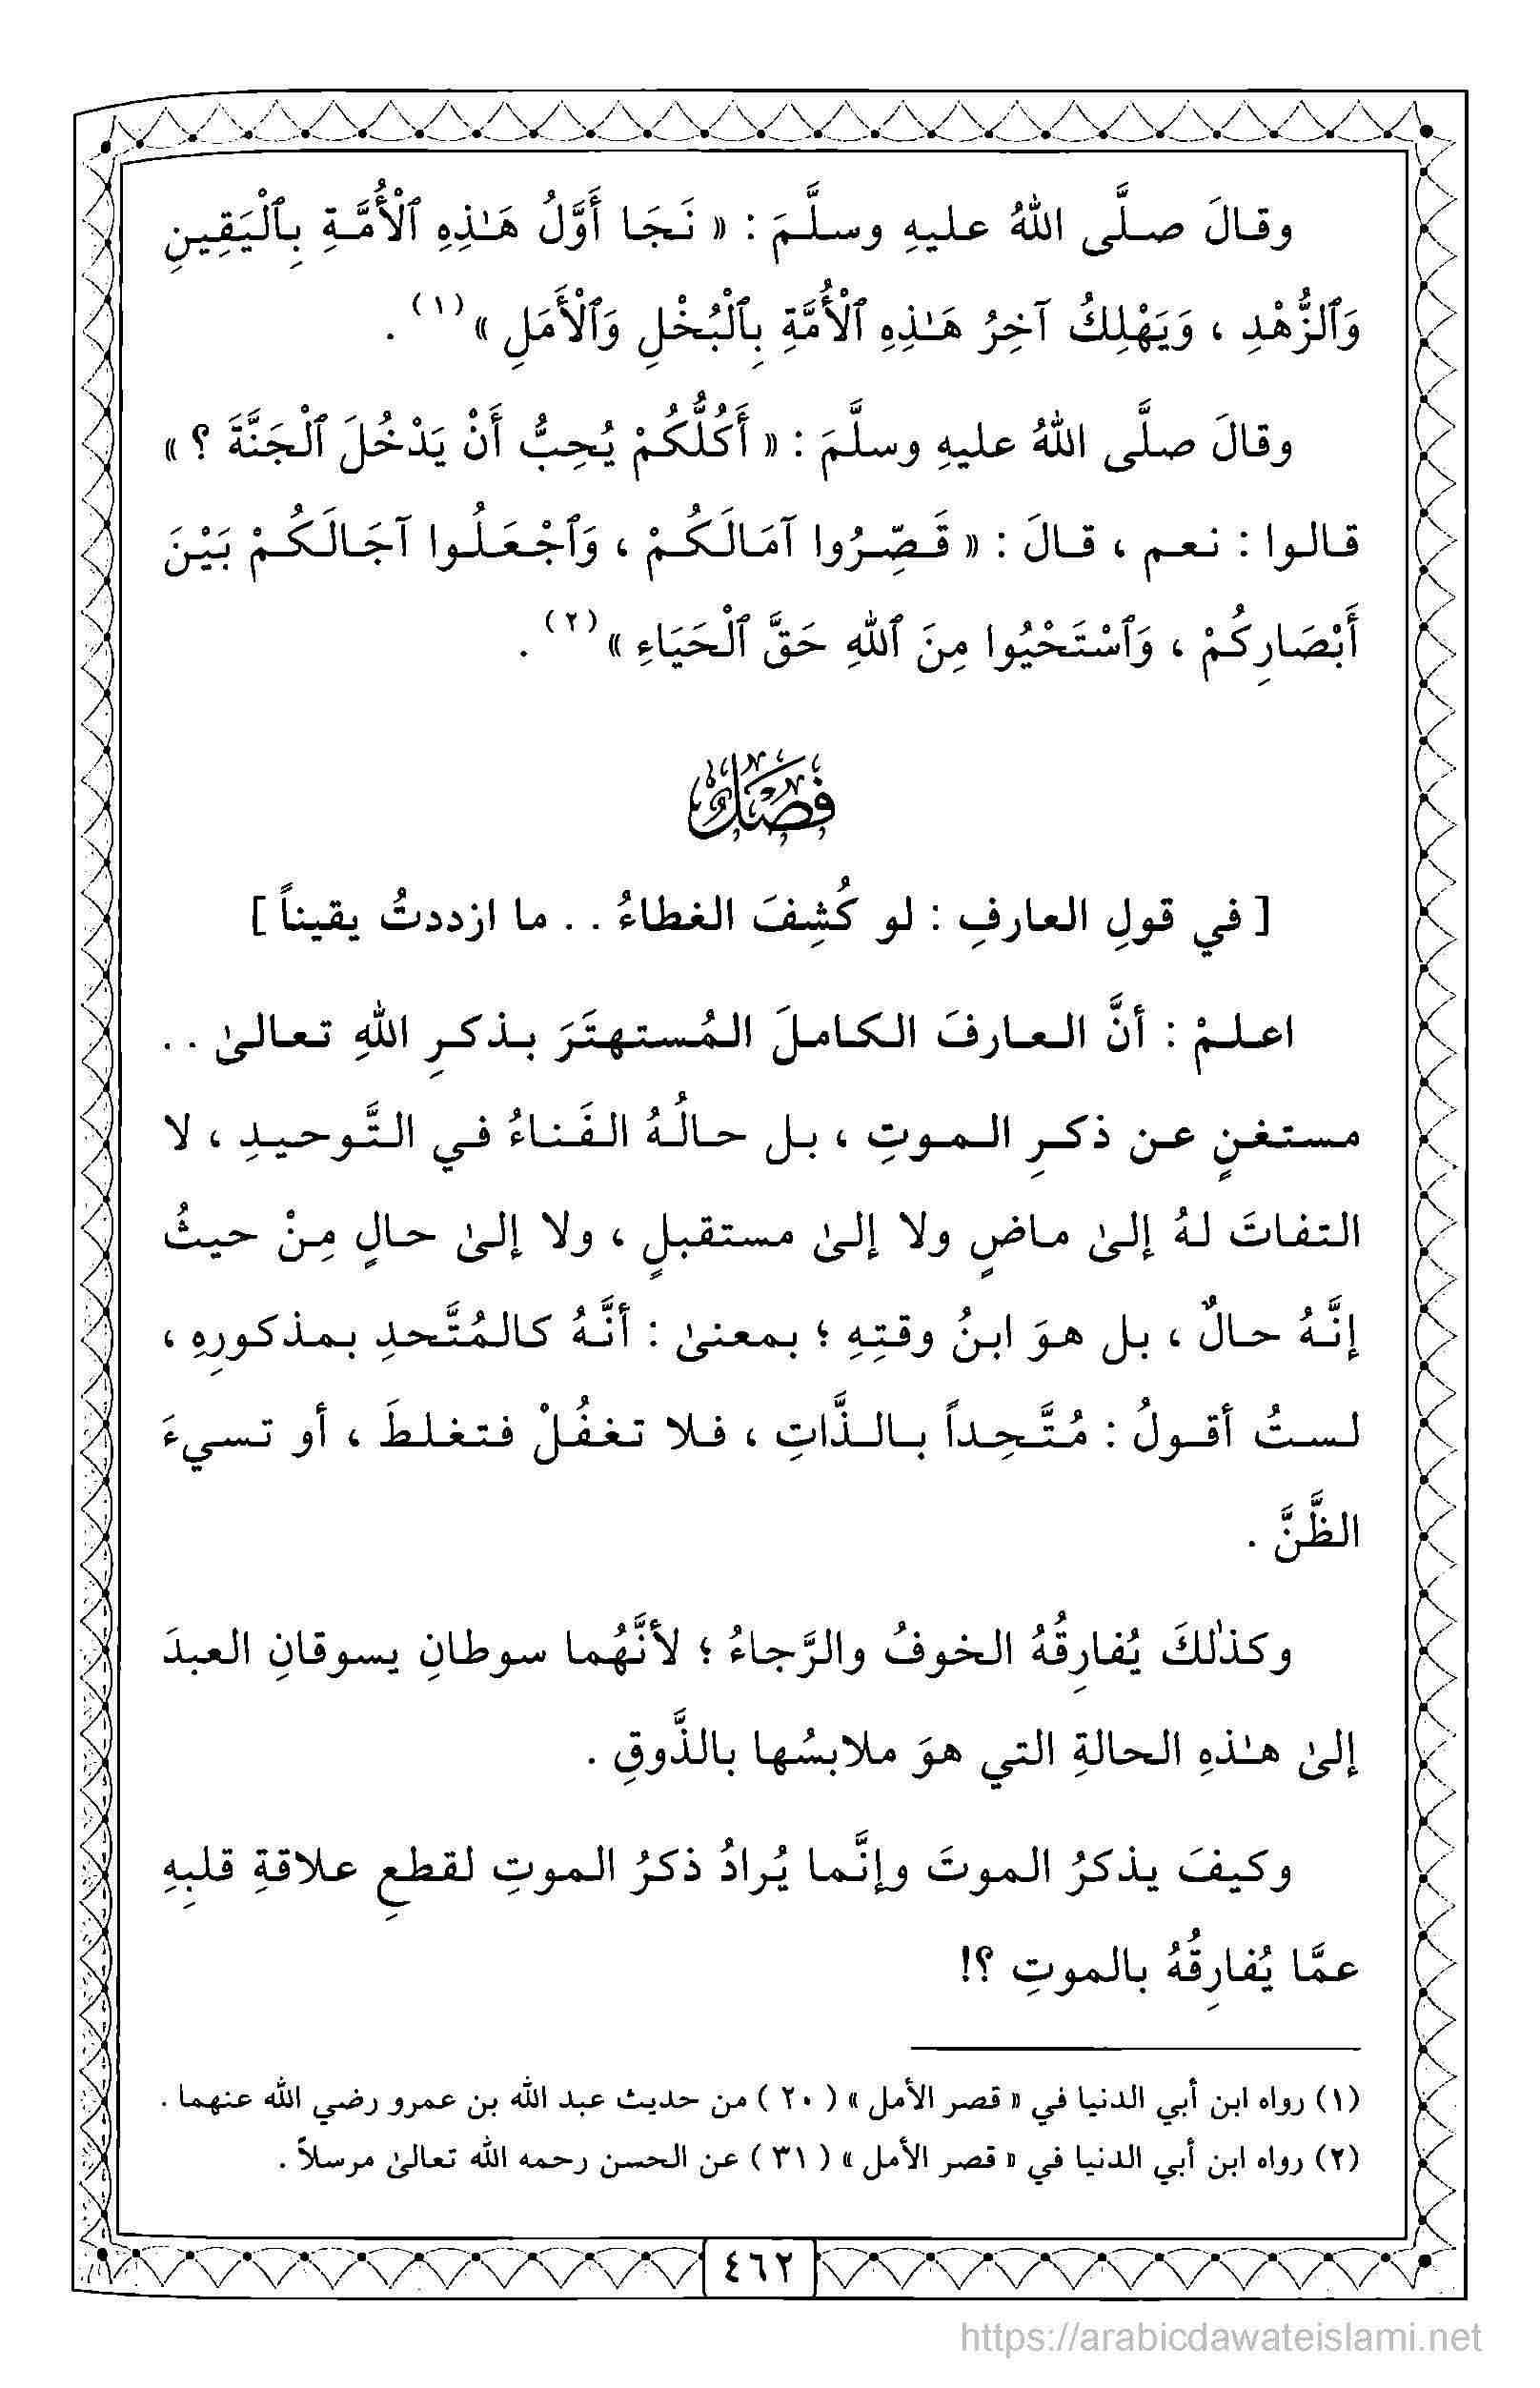 وقالَ صلَّى اللهُ عليهِ وسلَّمَ : « نَجَا أَوَّلُ هَـٰذِهِ ٱلْأُمَّةِ بِٱلْيَقِينِ
وَٱلزُّهْدِ ، وَيَهْلِكُ آخِرُ هَـٰذِهِ ٱلْأُمَّةِ بِٱلْبُخْلِ وَٱلْأَمَلِ »(١) .
وقالَ صلَّى اللهُ عليهِ وسلَّمَ : « أَكُلُّكُمْ يُحِبُّ أَنْ يَدْخُلَ ٱلْجَنَّةَ ؟ »
قالوا : نعم ، قالَ : « قَصِّرُوا آمَالَكُمْ ، وَٱجْعَلُوا آجَالَكُمْ بَيْنَ
أَبْصَارِكُمْ ، وَٱسْتَحْيُوا مِنَ ٱللهِ حَقَّ ٱلْحَيَاءِ »(٢) .
فصل
[ في قولِ العارفِ : لو كُشِفَ الغطاءُ . . ما ازددتُ يقيناً ]
اعلمْ : أنَّ العارفَ الكاملَ المُستهتَرَ بذكرِ اللهِ تعالىٰ . .
مستغنٍ عن ذكرِ الموتِ ، بل حالُهُ الفَناءُ في التَّوحيدِ ، لا
التفاتَ لهُ إلىٰ ماضٍ ولا إلىٰ مستقبلٍ ، ولا إلىٰ حالٍ مِنْ حيثُ
إنَّهُ حالٌ ، بل هوَ ابنُ وقتِهِ ؛ بمعنىٰ : أنَّهُ كالمُتَّحدِ بمذكورِهِ ،
لستُ أقولُ : مُتَّحِداً بالذَّاتِ ، فلا تغفُلْ فتغلطَ ، أو تسيءَ
الظَّنَّ .
وكذٰلكَ يُفارِقُهُ الخوفُ والرَّجاءُ ؛ لأنَّهُما سوطانِ يسوقانِ العبدَ
إلىٰ هـٰذهِ الحالةِ التي هوَ ملابسُها بالذَّوقِ .
وكيفَ يذكرُ الموتَ وإنَّما يُرادُ ذكرُ الموتِ لقطعِ علاقةِ قلبِهِ
عمَّا يُفارِقُهُ بالموتِ ؟!
(١) رواه ابن أبي الدنيا في « قصر الأمل » ( ٢٠ ) من حديث عبد الله بن عمرو رضي الله عنهما .
(٢) رواه ابن أبي الدنيا في « قصر الأمل » ( ٣١ ) عن الحسن رحمه الله تعالىٰ مرسلاً .
٤٦٢
https://arabicdawateislami.net